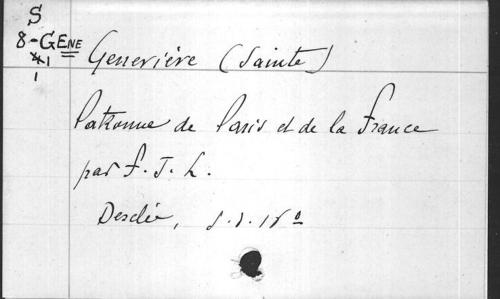 S
8-GENE
*1
1
Geneviève (Sainte)
Patronne de Paris et de la France
par F. J. L.
Desclée, s.d. 18º